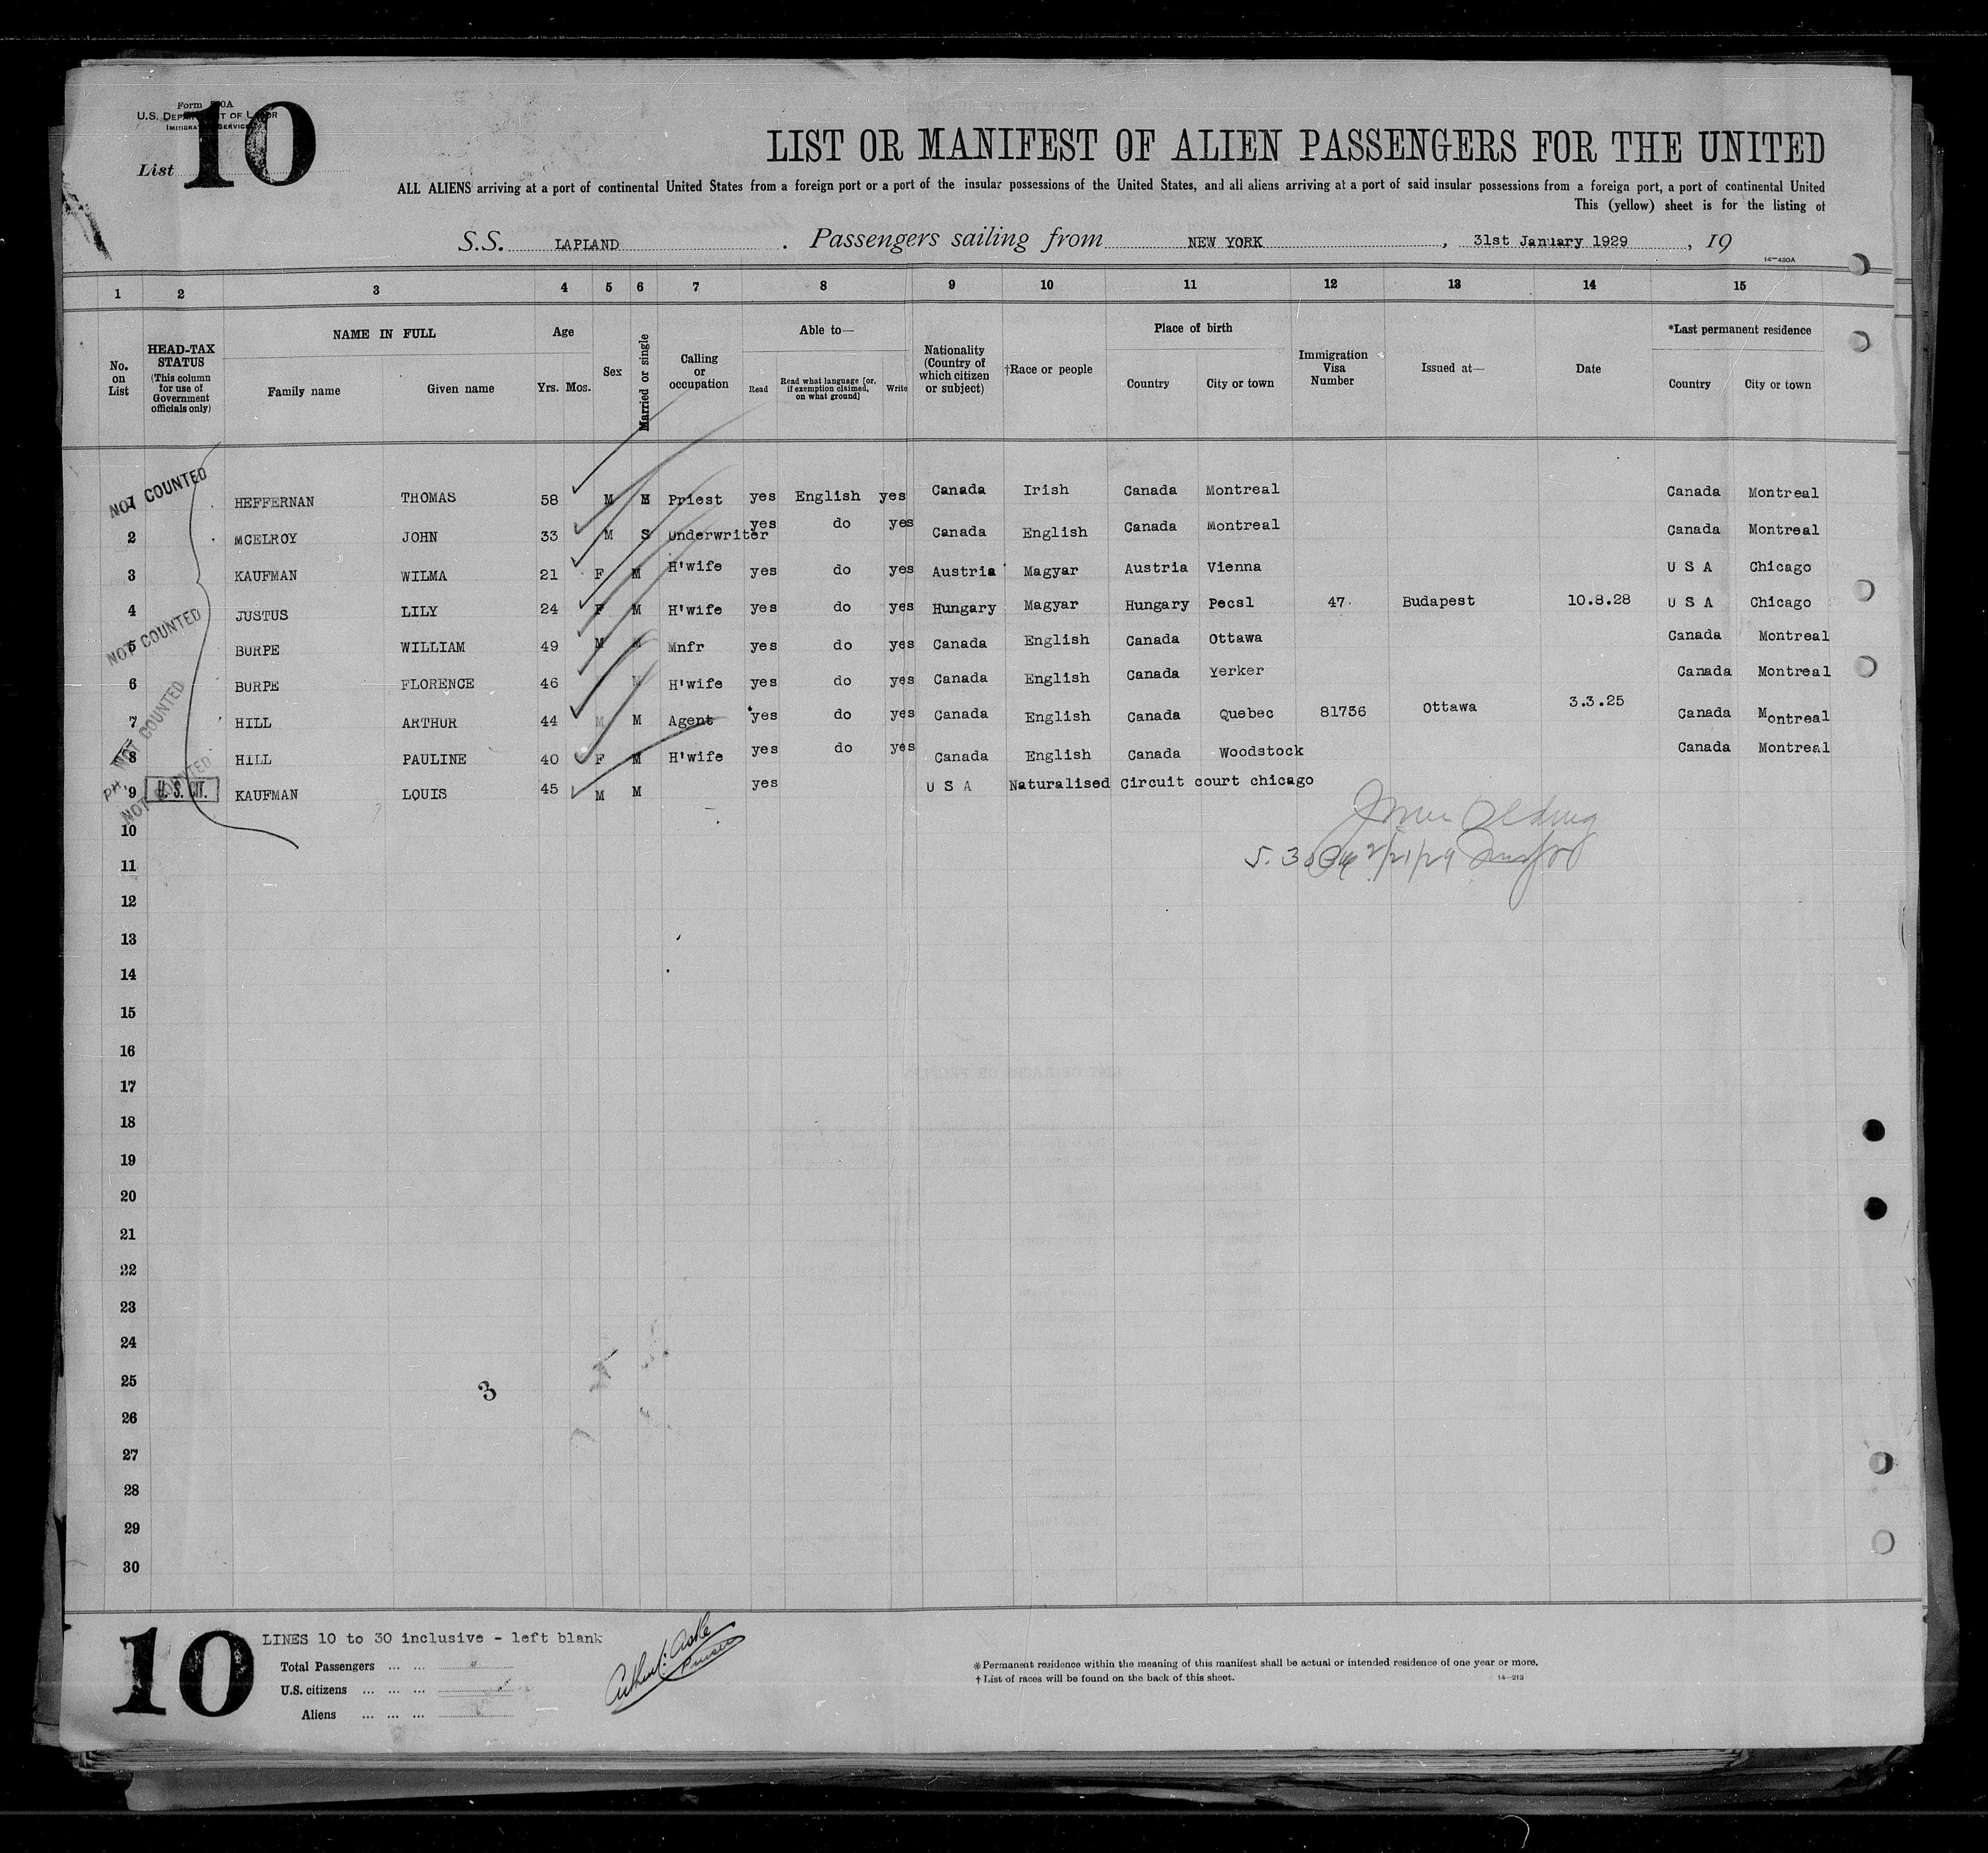 Form 500A
U.S. DEPARTMENT OF LABOR
IMMIGRATION SERVICE
List 10
LIST OR MANIFEST OF ALIEN PASSENGERS FOR THE UNITED
ALL ALIENS arriving at a port of continental United States from a foreign port or a port of the insular possessions of the United States, and all aliens arriving at a port of said insular possessions from a foreign port, a port of continental United
This (yellow) sheet is for the listing of
S.S. LAPLAND . Passengers sailing from NEW YORK , 31st January 1929 , 19
14—480A
1 2 3 4 5 6 7 8 9 10 11 12 13 14 15
No. on List
HEAD-TAX STATUS (This column for use of Government officials only)
NAME IN FULL
Family name Given name
Age
Yrs. Mos.
Sex
Married or single
Calling or occupation
Able to—
Read Read what language [or, if exemption claimed, on what ground] Write
Nationality (Country of which citizen or subject)
†Race or people
Place of birth
Country City or town
Immigration Visa Number
Issued at—
Date
*Last permanent residence
Country City or town
NOT COUNTED
1 HEFFERNAN THOMAS 58 M Priest yes English yes Canada Irish Canada Montreal Canada Montreal
2 MCELROY JOHN 33 M S Underwriter yes do yes Canada English Canada Montreal Canada Montreal
3 KAUFMAN WILMA 21 F M H'wife yes do yes Austria Magyar Austria Vienna U S A Chicago
4 JUSTUS LILY 24 F M H'wife yes do yes Hungary Magyar Hungary Pecsl 47 Budapest 10.8.28 U S A Chicago
NOT COUNTED
5 BURPE WILLIAM 49 M M Mnfr yes do yes Canada English Canada Ottawa Canada Montreal
6 BURPE FLORENCE 46 M H'wife yes do yes Canada English Canada Yerker Canada Montreal
NOT COUNTED
7 HILL ARTHUR 44 M M Agent yes do yes Canada English Canada Quebec 81736 Ottawa 3.3.25 Canada Montreal
8 HILL PAULINE 40 F M H'wife yes do yes Canada English Canada Woodstock Canada Montreal
NOT COUNTED
9 U.S. CIT. KAUFMAN LOUIS 45 M M yes U S A Naturalised Circuit court chicago
10
11 2/21/29
12
13
14
15
16
17
18
19
20
21
22
23
24
25
3
26
27
28
29
30
10
LINES 10 to 30 inclusive - left blank
Total Passengers ... ...
U.S. citizens ... ... ...
Aliens ... ... ...
*Permanent residence within the meaning of this manifest shall be actual or intended residence of one year or more.
†List of races will be found on the back of this sheet.
14—213